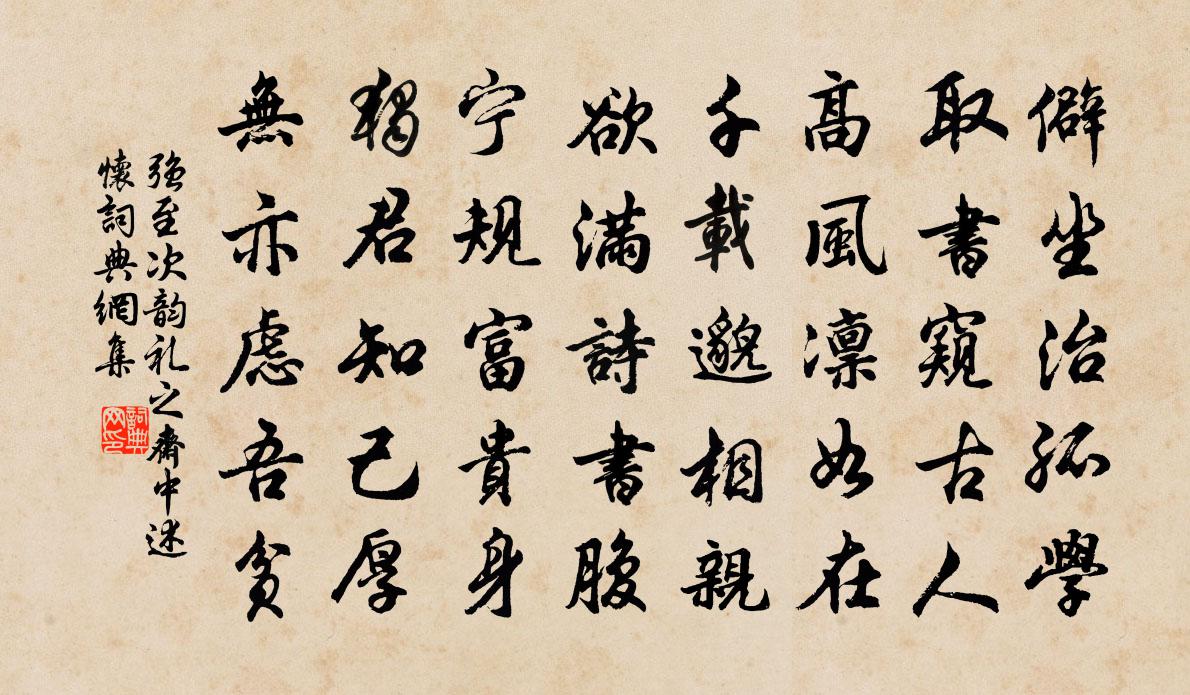 僻坐治孤學
取書窺古人
高風凛如在
千載邈相親
欲滿詩書腹
宁規富貴身
獨君知己厚
無亦慮吾貧
強至次韵礼之齋中述
懷詞典網集
詞典
网印